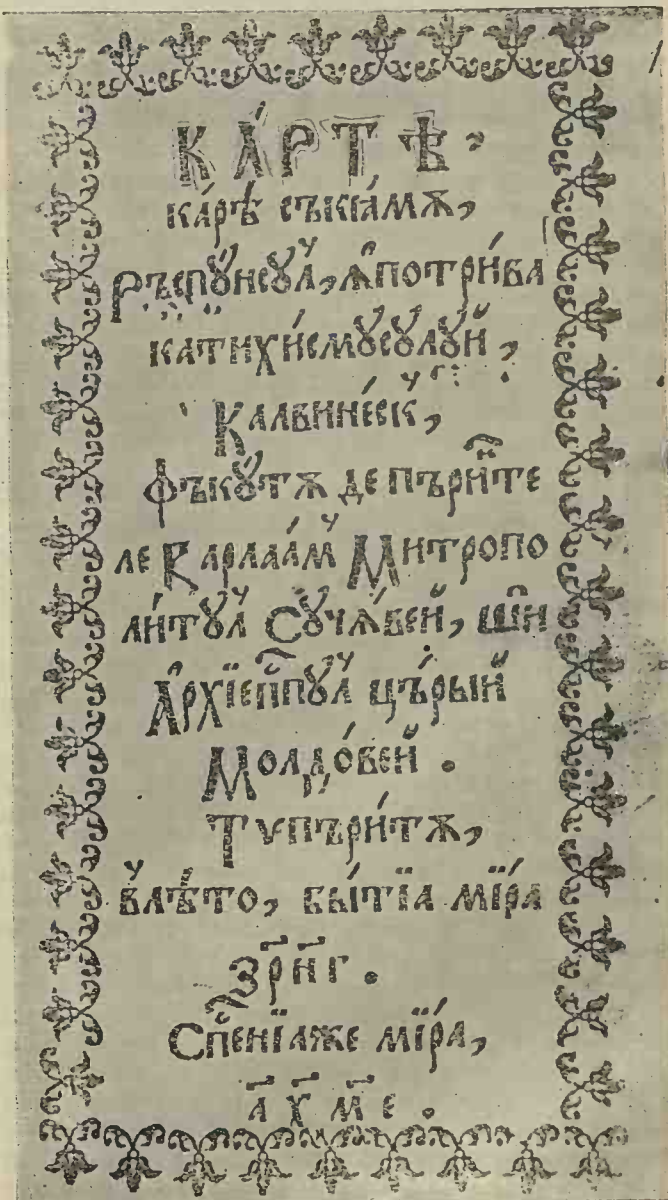 КА́РТѢ·
ка́рѣ съкїа́мѫ,
Ръспꙋ́нсꙋл, ꙟпотри́ва
катихи́смꙋсꙋлꙋй,
Калвине́ск,
Фъкꙋ́тѫ де пъри́нте
ле Варлаа́м Митропо
ли́тꙋл Сꙋчѧ́вей, ши
А҆рхїеп҃пꙋл цъ́рый
Молдо́вей.
Тѵпъри́тѫ,
в̾лѣ́то, бы́тїа мі́ра
҂зр҃н҃г.
Сп҃сенїаже мі́ра,
а҃ х҃ м҃ е.